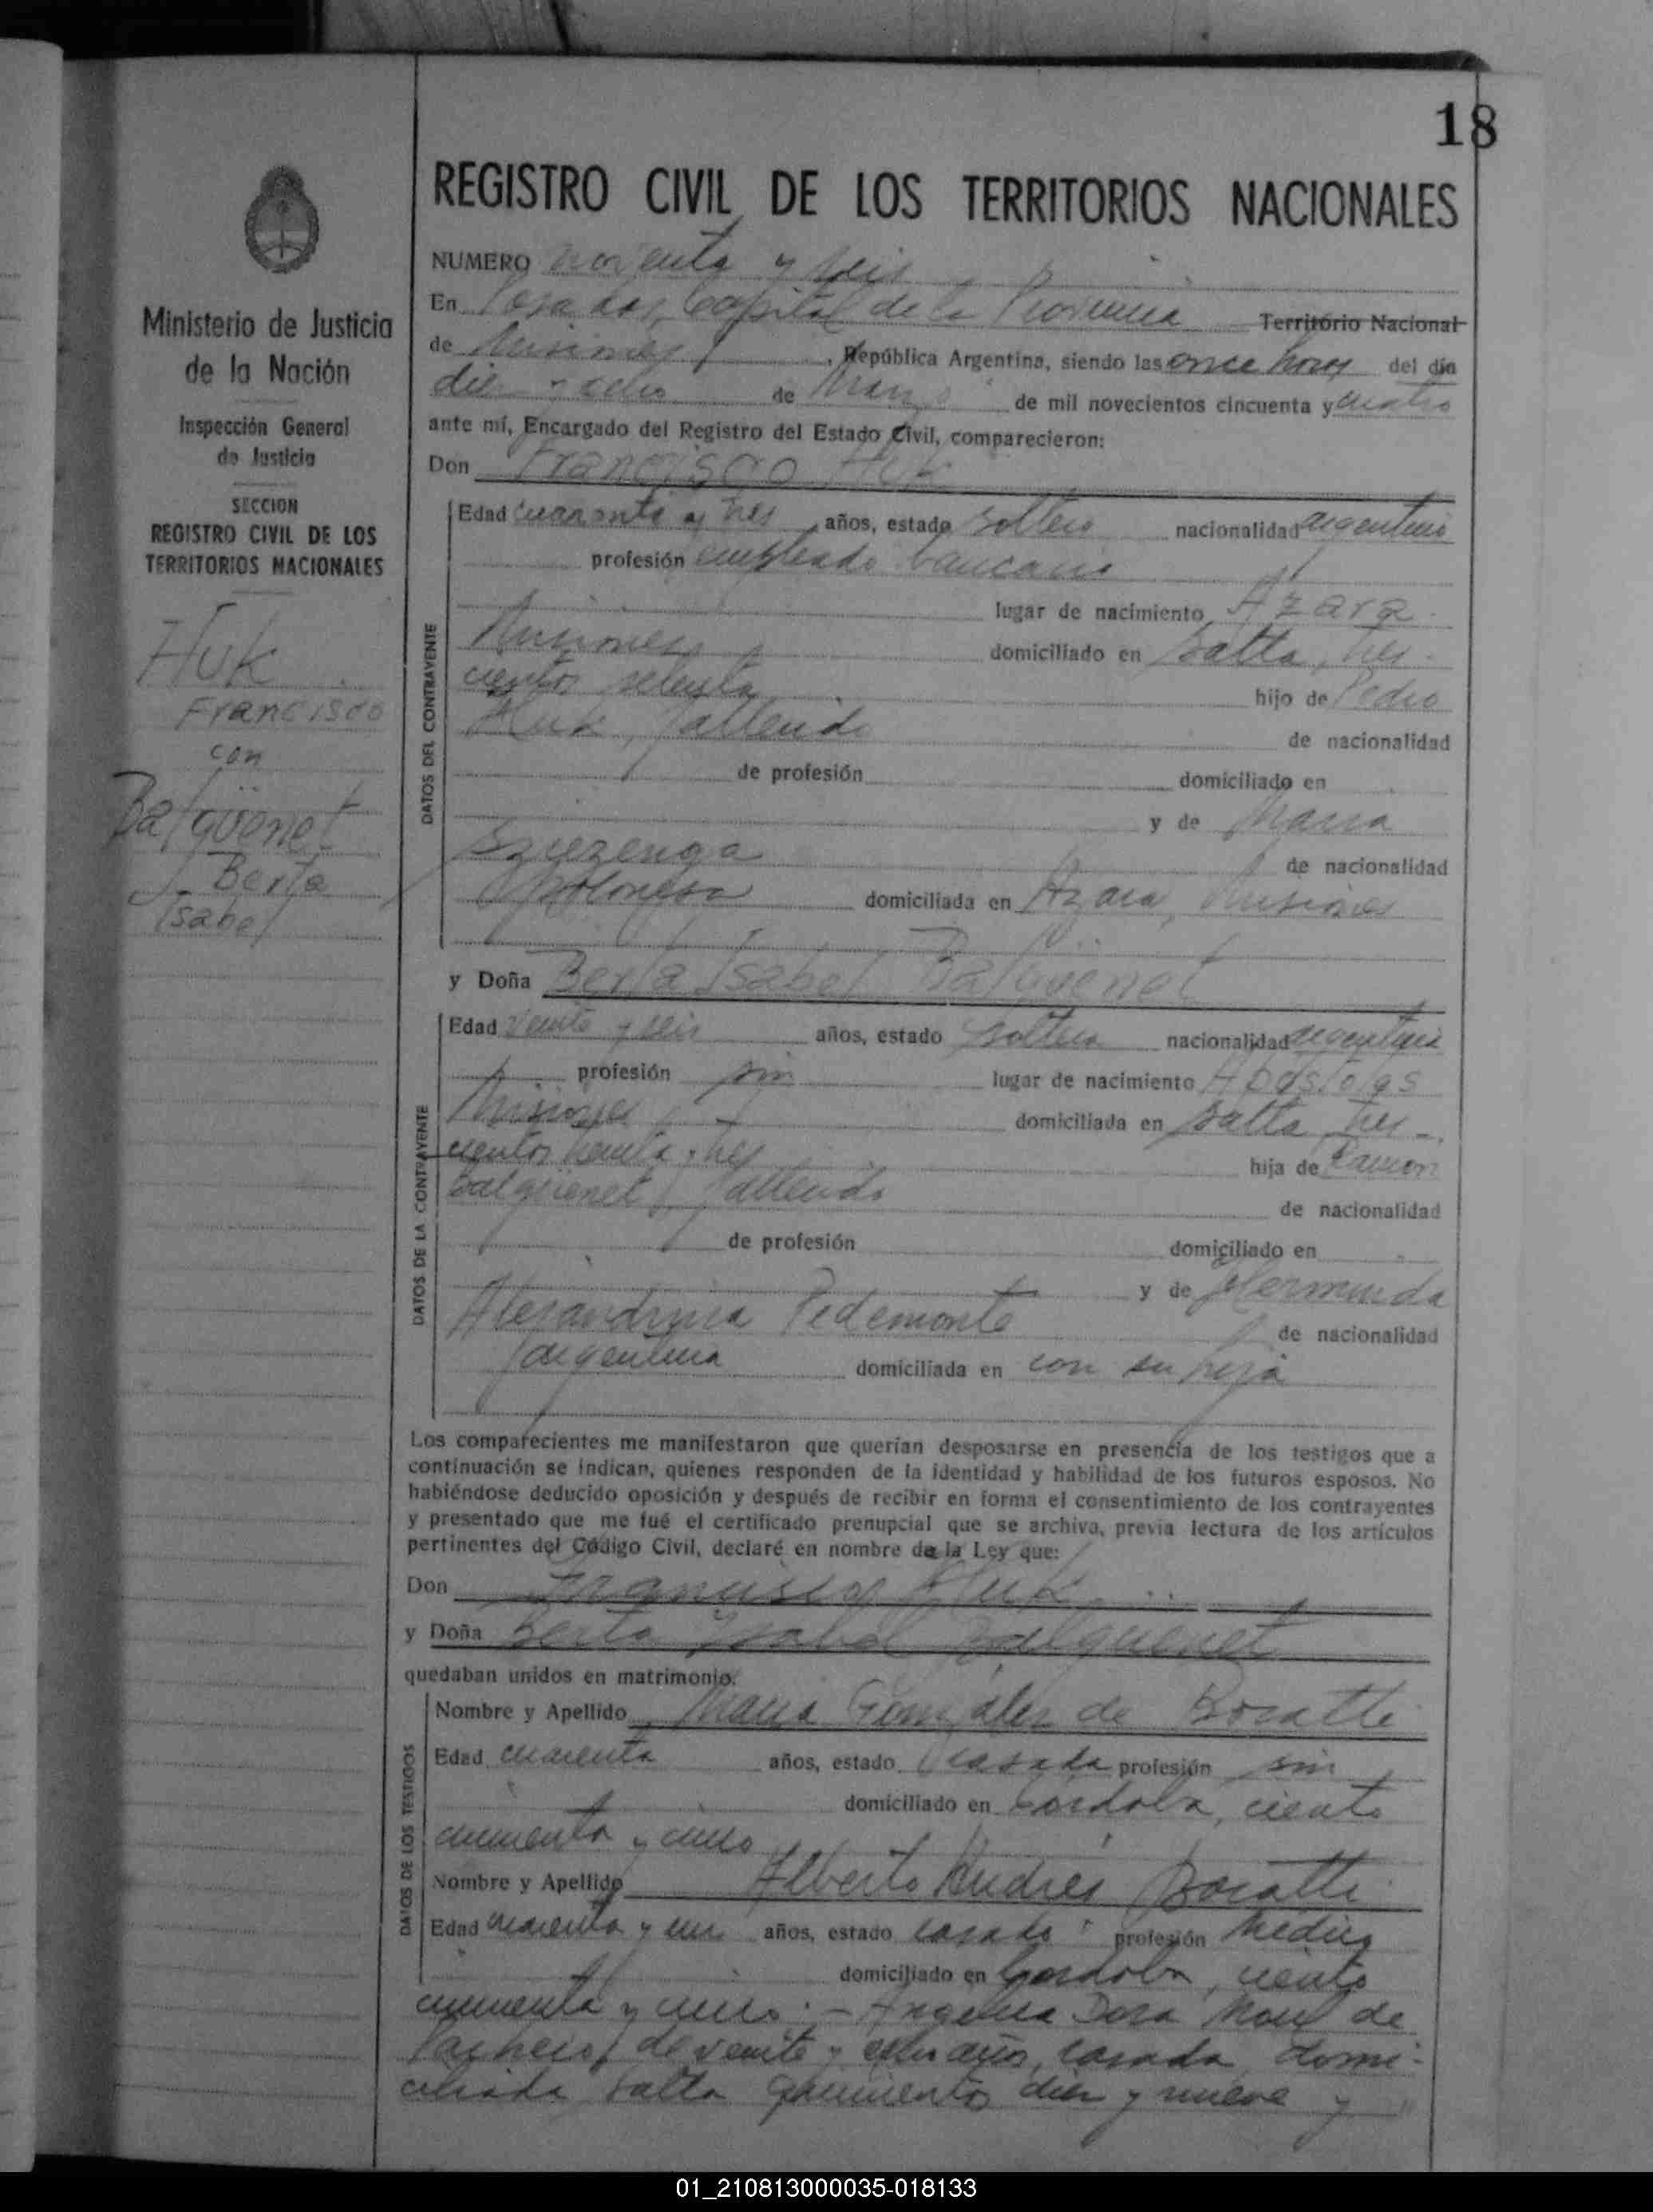 18
Ministerio de Justicia
de la Nación
Inspección General
de Justicia
SECCION
REGISTRO CIVIL DE LOS
TERRITORIOS NACIONALES
Huk
Francisco
con
Balgüenet
Berta
Isabel
REGISTRO CIVIL DE LOS TERRITORIOS NACIONALES
NUMERO noventa y seis
En Posadas, Capital de la Provincia Territorio Nacional
de Misiones, República Argentina, siendo las once horas del día
diez y ocho de Marzo de mil novecientos cincuenta y cuatro
ante mí, Encargado del Registro del Estado Civil, comparecieron:
Don Francisco Huk
DATOS DEL CONTRAYENTE
Edad cuarenta y tres años, estado soltero nacionalidad argentino
profesión empleado bancario
lugar de nacimiento Azara
Misiones domiciliado en Salta, tres-
cientos setenta hijo de Pedro
Huk, fallecido de nacionalidad
de profesión domiciliado en
y de Maria
de nacionalidad
polonesa domiciliada en Azara, Misiones
y Doña Berta Isabel Balgüenet
DATOS DE LA CONTRAYENTE
Edad veinte y seis años, estado soltera nacionalidad argentina
profesión sin lugar de nacimiento Apostoles
Misiones domiciliada en Salta, tres-
cientos treinta y tres hija de Ramon
Balgüenet, fallecido de nacionalidad
de profesión domiciliado en
y de Herminda
Alejandrina Pedemonte de nacionalidad
argentina domiciliada en con su hija
Los comparecientes me manifestaron que querían desposarse en presencia de los testigos que a
continuación se indican, quienes responden de la identidad y habilidad de los futuros esposos. No
habiéndose deducido oposición y después de recibir en forma el consentimiento de los contrayentes
y presentado que me fué el certificado prenupcial que se archiva, previa lectura de los artículos
pertinentes del Código Civil, declaré en nombre de la Ley que:
Don Francisco Huk
y Doña Berta Isabel Balguenet
quedaban unidos en matrimonio.
DATOS DE LOS TESTIGOS
Nombre y Apellido Maria Gonzalez de Boratti
Edad cuarenta años, estado casada profesión sin
domiciliado en Cordoba, ciento
cincuenta y cinco
Nombre y Apellido Alberto Andrés Boratti
Edad cuarenta y un años, estado casado profesión Médico
domiciliado en Cordoba, ciento
cincuenta y cinco.- Angelica Dora de
Pacheco, de veinte y años, casada, domi-
ciliada Salta quinientos diez y nueve y
01_210813000035-018133